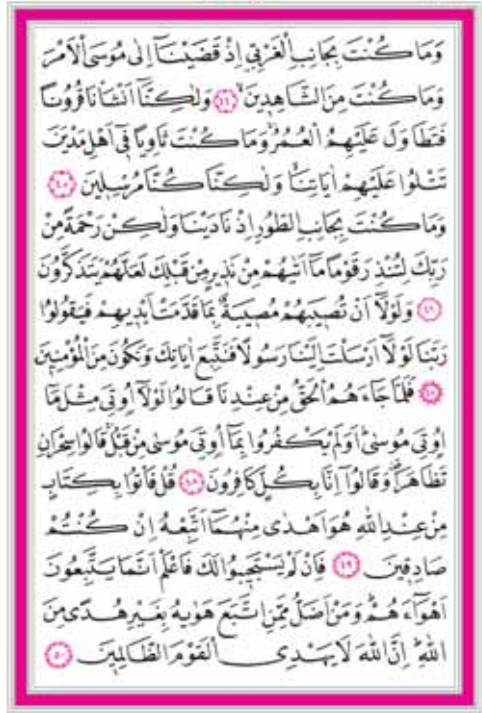 وَمَا كُنْتَ بِجَانِبِ الْغَرْبِيِّ اِذْ قَضَيْنَٓا اِلٰى مُوسَى الْاَمْرَ
وَمَا كُنْتَ مِنَ الشَّاهِد۪ينَۙ ﴿٤٤﴾ وَلٰكِنَّٓا اَنْشَأْنَا قُرُونًا
فَتَطَاوَلَ عَلَيْهِمُ الْعُمُرُۚ وَمَا كُنْتَ ثَاوِيًا ف۪ٓي اَهْلِ مَدْيَنَ
تَتْلُوا عَلَيْهِمْ اٰيَاتِنَاۙ وَلٰكِنَّا كُنَّا مُرْسِل۪ينَ ﴿٤٥﴾
وَمَا كُنْتَ بِجَانِبِ الطُّورِ اِذْ نَادَيْنَا وَلٰكِنْ رَحْمَةً مِنْ
رَبِّكَ لِتُنْذِرَ قَوْمًا مَٓا اَتٰيهُمْ مِنْ نَذ۪يرٍ مِنْ قَبْلِكَ لَعَلَّهُمْ يَتَذَكَّرُونَ
﴿٤٦﴾ وَلَوْلَٓا اَنْ تُص۪يبَهُمْ مُص۪يبَةٌ بِمَا قَدَّمَتْ اَيْد۪يهِمْ فَيَقُولُوا
رَبَّنَا لَوْلَٓا اَرْسَلْتَ اِلَيْنَا رَسُولًا فَنَتَّبِعَ اٰيَاتِكَ وَنَكُونَ مِنَ الْمُؤْمِن۪ينَ
﴿٤٧﴾ فَلَمَّا جَٓاءَهُمُ الْحَقُّ مِنْ عِنْدِنَا قَالُوا لَوْلَٓا اُو۫تِيَ مِثْلَ مَٓا
اُو۫تِيَ مُوسٰىۜ اَوَلَمْ يَكْفُرُوا بِمَٓا اُو۫تِيَ مُوسٰى مِنْ قَبْلُۚ قَالُوا سِحْرَانِ
تَظَاهَرَا۠ وَقَالُٓوا اِنَّا بِكُلٍّ كَافِرُونَ ﴿٤٨﴾ قُلْ فَأْتُوا بِكِتَابٍ
مِنْ عِنْدِ اللّٰهِ هُوَ اَهْدٰى مِنْهُمَٓا اَتَّبِعْهُ اِنْ كُنْتُمْ
صَادِق۪ينَ ﴿٤٩﴾ فَاِنْ لَمْ يَسْتَج۪يبُوا لَكَ فَاعْلَمْ اَنَّمَا يَتَّبِعُونَ
اَهْوَٓاءَهُمْۜ وَمَنْ اَضَلُّ مِمَّنِ اتَّبَعَ هَوٰيهُ بِغَيْرِ هُدًى مِنَ
اللّٰهِۜ اِنَّ اللّٰهَ لَا يَهْدِي الْقَوْمَ الظَّالِم۪ينَ ﴿٥٠﴾